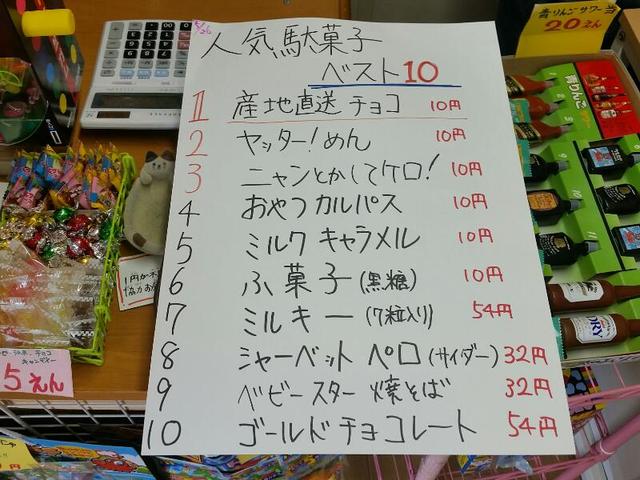 5/26
人気駄菓子
ベスト10
1 産地直送チョコ 10円
2 ヤッター!めん 10円
3 ニャンとかしてケロ! 10円
4 おやつカルパス 10円
5 ミルクキャラメル 10円
6 ふ菓子(黒糖) 10円
7 ミルキー(7粒入り) 54円
8 シャーベットペロ(サイダー) 32円
9 ベビースター焼そば 32円
10 ゴールドチョコレート 54円
青りんごサワー
20えん
青りんご
5えん